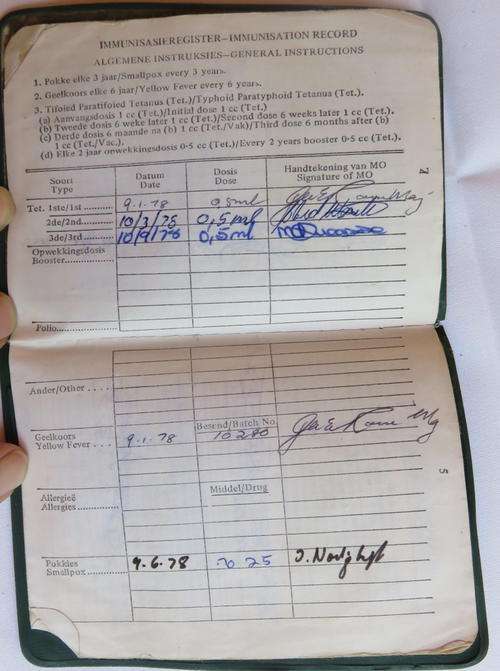 IMMUNISASIEREGISTER—IMMUNISATION RECORD
ALGEMENE INSTRUKSIES—GENERAL INSTRUCTIONS
1. Pokke elke 3 jaar/Smallpox every 3 years.
2. Geelkoors elke 6 jaar/Yellow Fever every 6 years.
3. Tifoied Paratifoied Tetanus (Tet.)/Typhoid Paratyphoid Tetanus (Tet.).
(a) Aanvangsdosis 1 cc (Tet.)/Initial dose 1 cc (Tet.)
(b) Tweede dosis 6 weke later 1 cc (Tet.)/Second dose 6 weeks later 1 cc (Tet.).
(c) Derde dosis 6 maande na (b) 1 cc (Tet./Vak)/Third dose 6 months after (b)
1 cc (Tet./Vac.).
(d) Elke 2 jaar opwekkingsdosis 0·5 cc (Tet.)/Every 2 years booster 0·5 cc (Tet.).
Soort Type Datum Date Dosis Dose Handtekening van MO Signature of MO
Tet. 1ste/1st 9.1.78 0.5ml
2de/2nd 10/3/78 0,5ml
3de/3rd 10/9/78 0,5ml
Opwekkingsdosis
Booster
Folio
7
Ander/Other
Besend/Batch No.
Geelkoors
Yellow Fever 9.1.78 10280
5
Allergieë Middel/Drug
Allergies
Pokkies
Smallpox 9.6.78